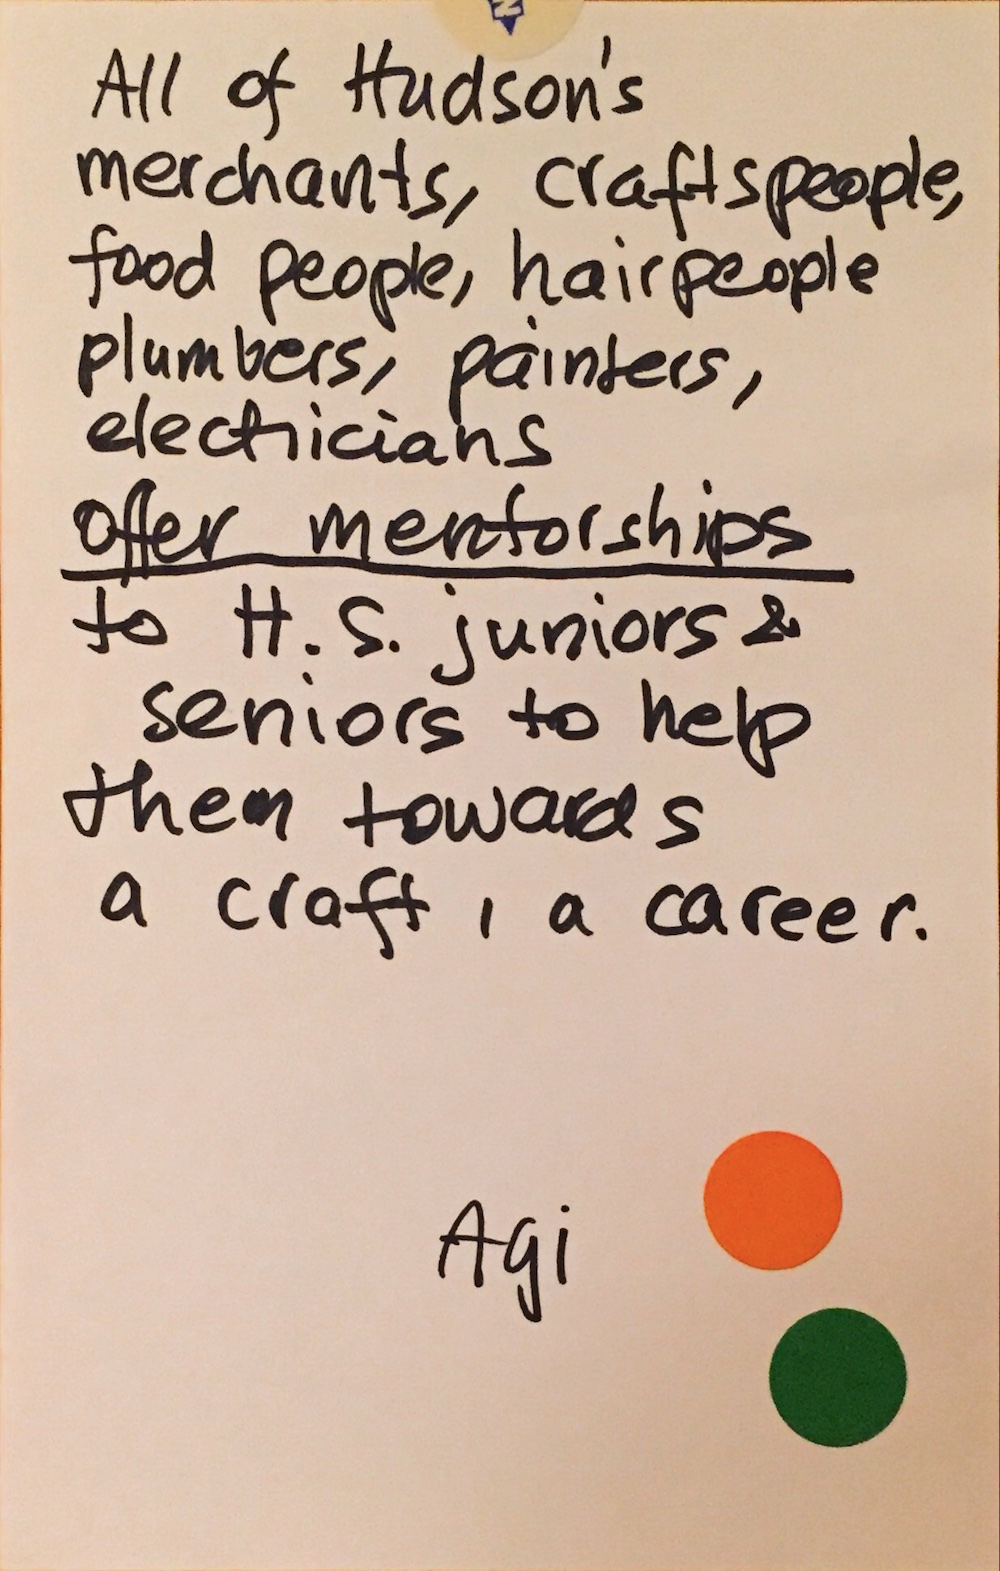 All of Hudson's
merchants, craftspeople,
food people, hairpeople
plumbers, painters,
electricians
offer mentorships
to H.S. juniors &
seniors to help
them towards
a craft, a career.
Agi